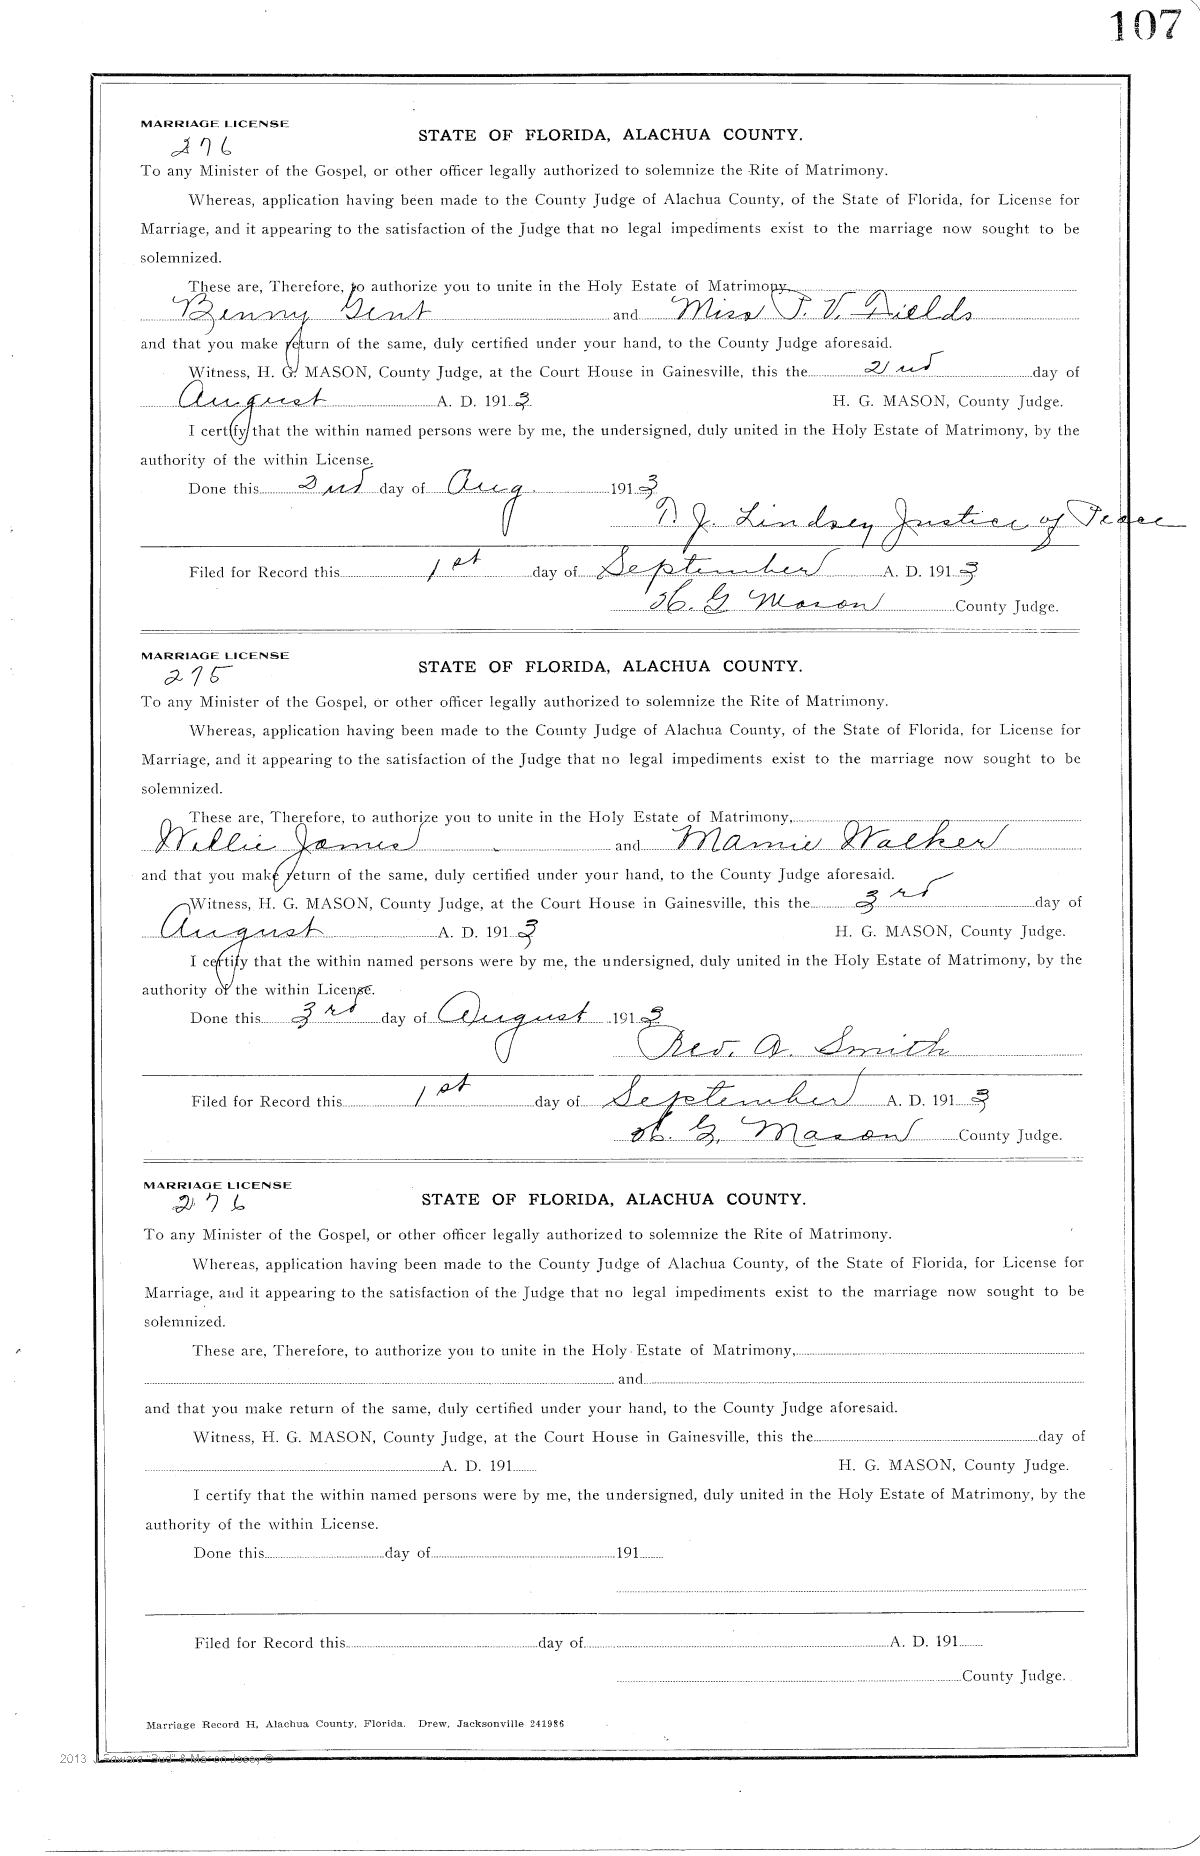 107
MARRIAGE LICENSE
276
STATE OF FLORIDA, ALACHUA COUNTY.
To any Minister of the Gospel, or other officer legally authorized to solemnize the Rite of Matrimony.
Whereas, application having been made to the County Judge of Alachua County, of the State of Florida, for License for
Marriage, and it appearing to the satisfaction of the Judge that no legal impediments exist to the marriage now sought to be
solemnized.
These are, Therefore, to authorize you to unite in the Holy Estate of Matrimony,
Benny Gent and Miss P. V. Fields
and that you make return of the same, duly certified under your hand, to the County Judge aforesaid.
Witness, H. G. MASON, County Judge, at the Court House in Gainesville, this the 2nd day of
August A. D. 1913 H. G. MASON, County Judge.
I certify that the within named persons were by me, the undersigned, duly united in the Holy Estate of Matrimony, by the
authority of the within License.
Done this 2nd day of Aug. 1913
T. J. Lindsey Justice of Peace
Filed for Record this 1st day of September A. D. 1913
H. G Mason County Judge.
MARRIAGE LICENSE
275
STATE OF FLORIDA, ALACHUA COUNTY.
To any Minister of the Gospel, or other officer legally authorized to solemnize the Rite of Matrimony.
Whereas, application having been made to the County Judge of Alachua County, of the State of Florida, for License for
Marriage, and it appearing to the satisfaction of the Judge that no legal impediments exist to the marriage now sought to be
solemnized.
These are, Therefore, to authorize you to unite in the Holy Estate of Matrimony,
Willie James and Mamie Walker
and that you make return of the same, duly certified under your hand, to the County Judge aforesaid.
Witness, H. G. MASON, County Judge, at the Court House in Gainesville, this the 3rd day of
August A. D. 1913 H. G. MASON, County Judge.
I certify that the within named persons were by me, the undersigned, duly united in the Holy Estate of Matrimony, by the
authority of the within License.
Done this 3rd day of August 1913
Rev. A. Smith
Filed for Record this 1st day of September A. D. 1913
H. G. Mason County Judge.
MARRIAGE LICENSE
276
STATE OF FLORIDA, ALACHUA COUNTY.
To any Minister of the Gospel, or other officer legally authorized to solemnize the Rite of Matrimony.
Whereas, application having been made to the County Judge of Alachua County, of the State of Florida, for License for
Marriage, and it appearing to the satisfaction of the Judge that no legal impediments exist to the marriage now sought to be
solemnized.
These are, Therefore, to authorize you to unite in the Holy Estate of Matrimony,
and
and that you make return of the same, duly certified under your hand, to the County Judge aforesaid.
Witness, H. G. MASON, County Judge, at the Court House in Gainesville, this the day of
A. D. 191 H. G. MASON, County Judge.
I certify that the within named persons were by me, the undersigned, duly united in the Holy Estate of Matrimony, by the
authority of the within License.
Done this day of 191
Filed for Record this day of A. D. 191
County Judge.
Marriage Record H, Alachua County, Florida. Drew, Jacksonville 241986
2013